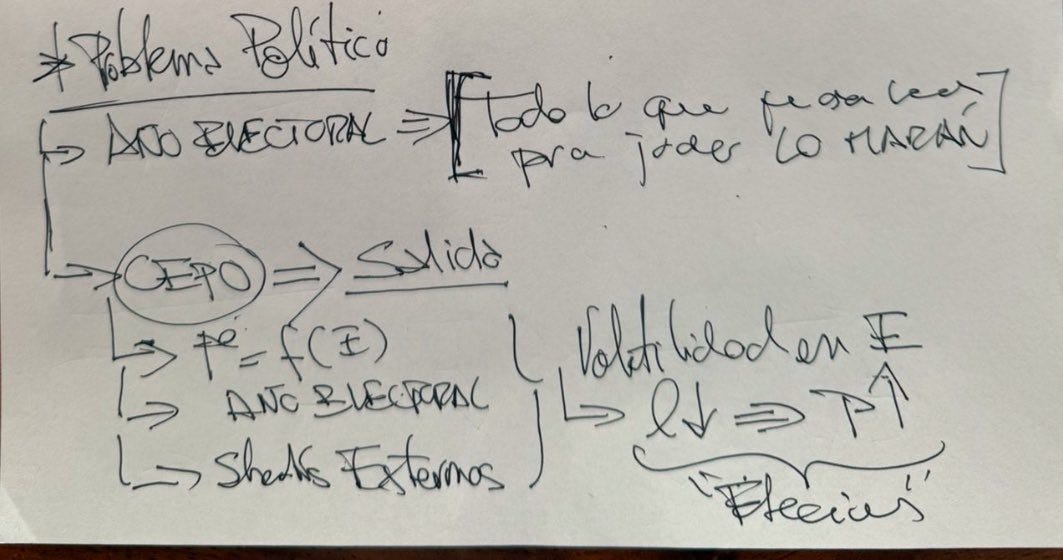 * Problema Político
→ AÑO ELECTORAL ⇒ [Todo lo que puedan hacer
para joder LO HARÁN]
→ CEPO ⇒ Salida
→ Ṗᵉ = f(E)
→ AÑO ELECTORAL
→ Shocks Externos
Volatilidad en E
→ l↓ ⇒ P↑